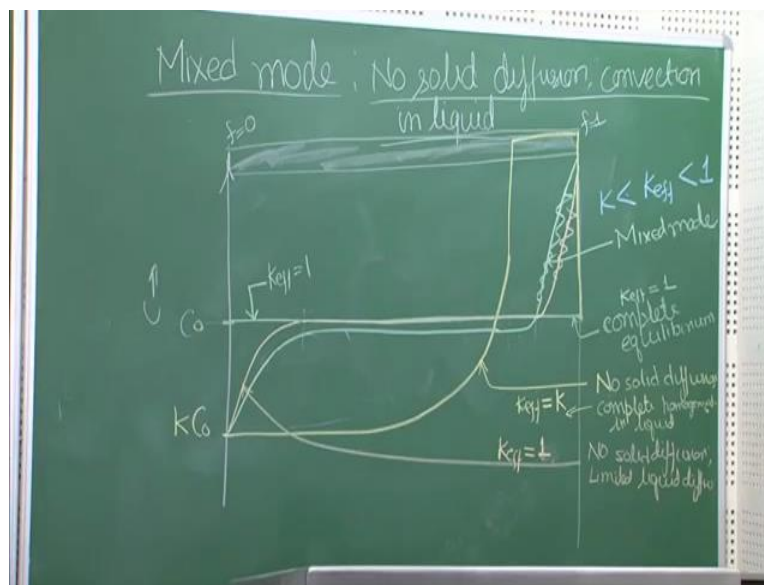 Mixed mode : No solid diffusion, convection
in liquid
f=0
f=1
K < Keff < 1
Mixed mode
Keff = 1
C
Co
Keff = 1
complete
equilibrium
KCo
No solid diffusion
Keff = K
complete
in liquid
Keff = 1
No solid diffusion,
Limited liquid